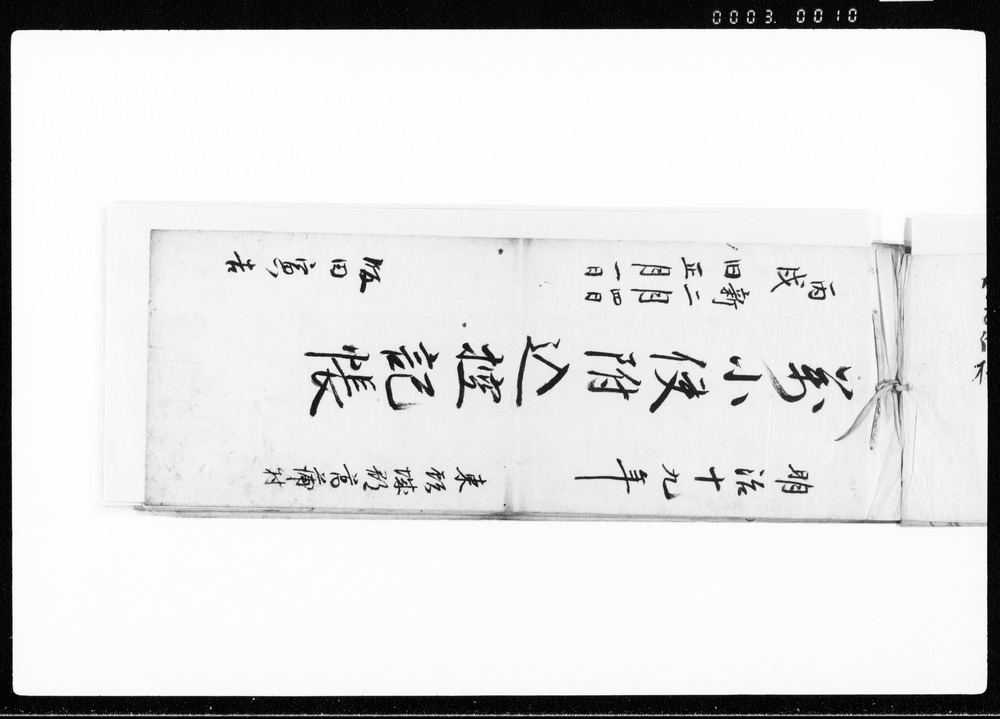 0003. 0010
明治十九年
萬小使附込控記帳
丙戌
新二月四日
旧正月一日
東頸城郡菖蒲村
飯田富吉